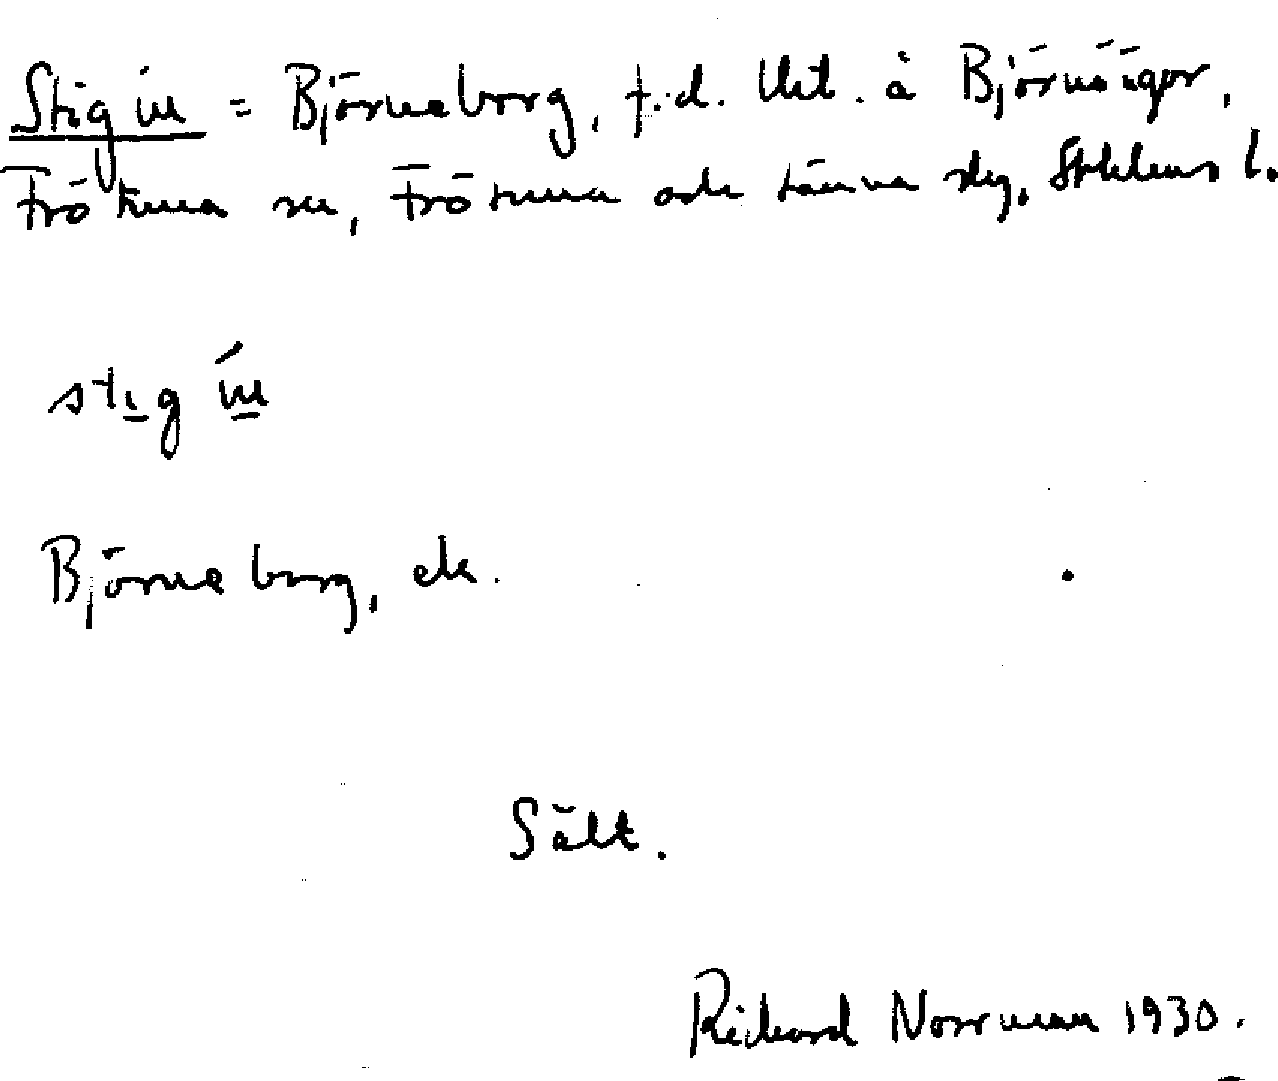 Stig in = Björneborg, f.d. lht. å Björnöägor,
Frötuna sn, Frötuna och Länna slg, Sthlms l.
stig ín
Björneborg, ele.
Sält.
Richard Norrman 1930.